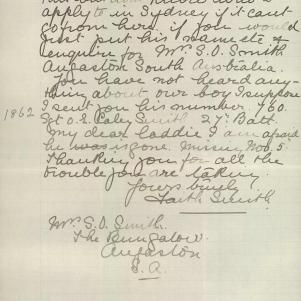 apply to in Sydney if it cant
go from here if you would
just put his name etc &
enquirer for Mrs. S.D. Smith
Angaston South Australia.
You have not heard any-
thing about our boy I suppose
1862 I sent you his number 760.
Sgt O.E. Paley Smith 27th Batt.
my dear laddie I am afraid
he was is gone. Missing Nov. 5.
Thanking you for all the
trouble you are taking
Yours truly
Faith Smith
Mrs. S.D. Smith
The Bungalow.
Angaston
S.A.